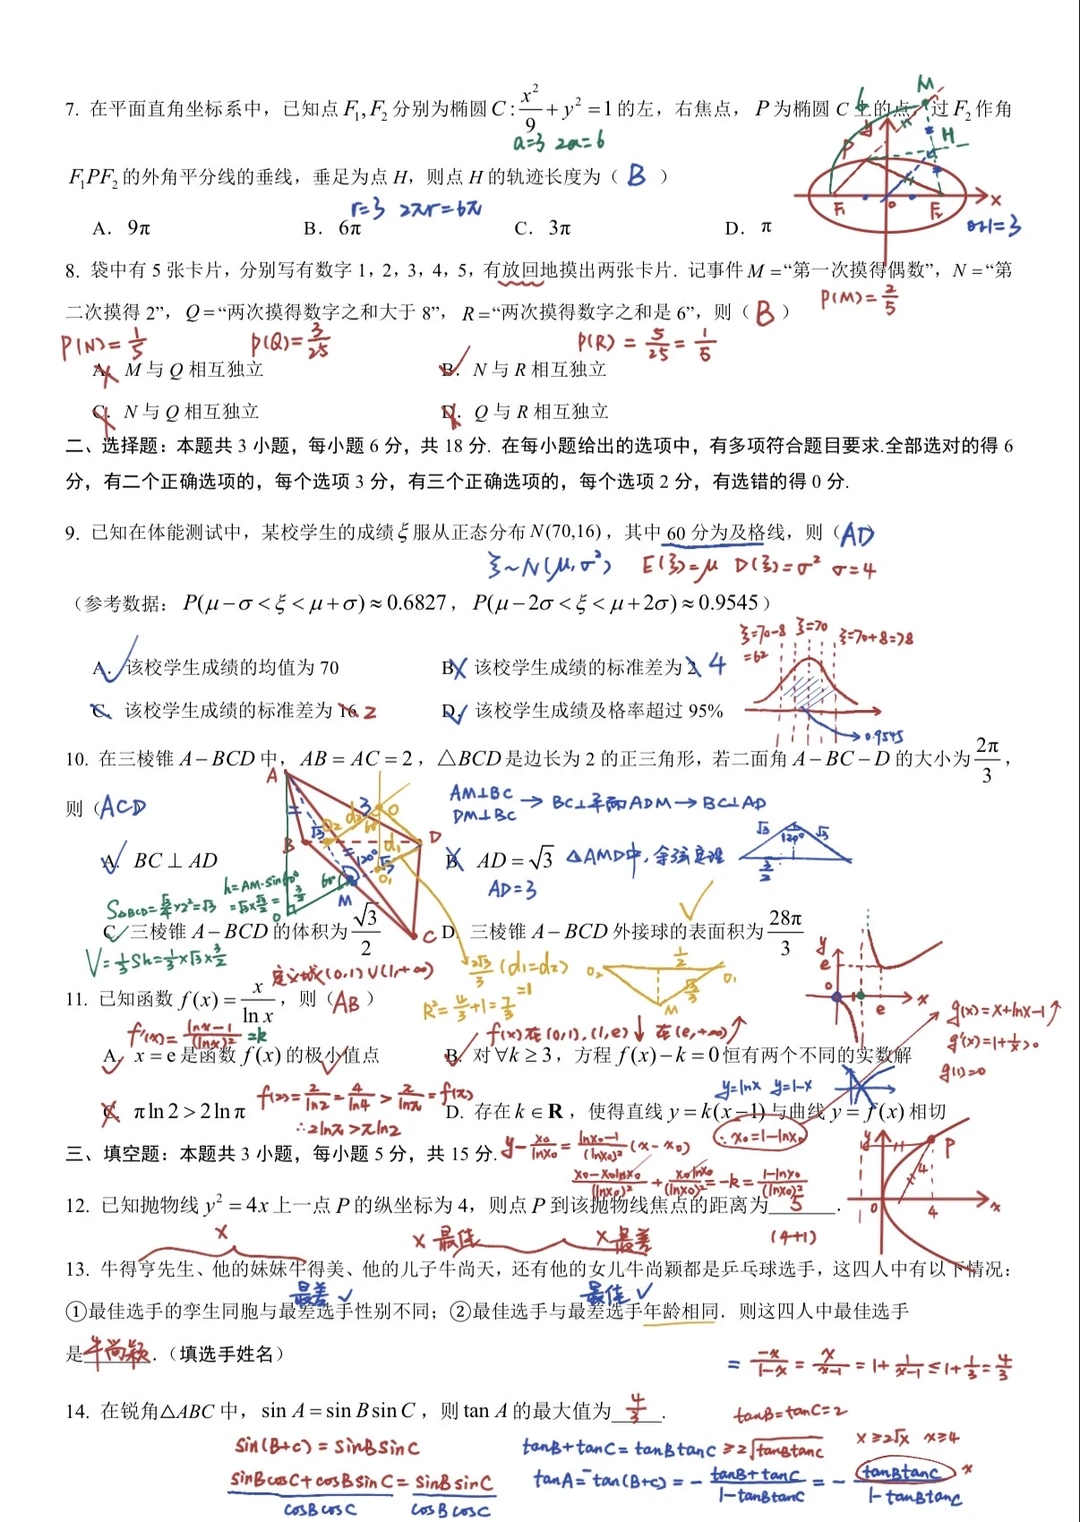 7. 在平面直角坐标系中，已知点 F₁, F₂ 分别为椭圆 C : x²/9 + y² = 1 的左，右焦点，P 为椭圆 C 上的点，过 F₂ 作角
a=3 2a=6
F₁PF₂ 的外角平分线的垂线，垂足为点 H，则点 H 的轨迹长度为（ B ）
r=3 2πr=6π
A. 9π B. 6π C. 3π D. π
M
H
P
6
y
F₁ O F₂ x
|OH|=3
8. 袋中有 5 张卡片，分别写有数字 1，2，3，4，5，有放回地摸出两张卡片. 记事件 M =“第一次摸得偶数”，N =“第
P(M)=2/5
二次摸得 2”，Q =“两次摸得数字之和大于 8”，R =“两次摸得数字之和是 6”，则（ B ）
P(N)=1/5 P(Q)=3/25 P(R)=5/25=1/5
A. M 与 Q 相互独立 B. N 与 R 相互独立
C. N 与 Q 相互独立 D. Q 与 R 相互独立
二、选择题：本题共 3 小题，每小题 6 分，共 18 分. 在每小题给出的选项中，有多项符合题目要求.全部选对的得 6
分，有二个正确选项的，每个选项 3 分，有三个正确选项的，每个选项 2 分，有选错的得 0 分.
9. 已知在体能测试中，某校学生的成绩 ξ 服从正态分布 N(70,16)，其中 60 分为及格线，则（ AD
ξ~N(μ,σ²) E(ξ)=μ D(ξ)=σ² σ=4
（参考数据：P(μ−σ<ξ<μ+σ)≈0.6827，P(μ−2σ<ξ<μ+2σ)≈0.9545）
ξ=70-8 ξ=70 ξ=70+8=78
=62
A. 该校学生成绩的均值为 70 B. 该校学生成绩的标准差为 2 4
C. 该校学生成绩的标准差为 16 2 D. 该校学生成绩及格率超过 95%
0.9545
10. 在三棱锥 A−BCD 中，AB = AC = 2，△BCD 是边长为 2 的正三角形，若二面角 A−BC−D 的大小为 2π/3，
则（ ACD
AM⊥BC
DM⊥BC → BC⊥平面ADM → BC⊥AD
A
B
C
D
M
O
√3 √3 120° 3/2
A. BC ⊥ AD B. AD = √3 △AMD中，余弦定理
AD=3
h=AM·sin60°
=√3×√3/2=3/2
S△BCD=√3/4×2²=√3
C. 三棱锥 A−BCD 的体积为 √3/2 D. 三棱锥 A−BCD 外接球的表面积为 28π/3
V=1/3Sh=1/3×√3×3/2
2√3/3 (d₁=d₂)
=1
R²=4/3+1=7/3
O₂ O₁ M
定义域(0,1)∪(1,+∞)
11. 已知函数 f(x) = x/ln x，则（ AB ）
f'(x)=(lnx-1)/(lnx)² =k
f(x)在(0,1),(1,e)↓ 在(e,+∞)↑
y e O 1 e x
g(x)=x+lnx-1↑
g'(x)=1+1/x>0
g(1)=0
A. x = e 是函数 f(x) 的极小值点 B. 对∀k ≥ 3，方程 f(x)−k = 0 恒有两个不同的实数解
f(2)=2/ln2=4/ln4>π/lnπ=f(π)
y=lnx y=1-x
C. π ln 2 > 2 ln π D. 存在 k ∈ R，使得直线 y = k(x−1) 与曲线 y = f(x) 相切
∴2lnπ>πln2
y-x₀/lnx₀=(lnx₀-1)/(lnx₀)²(x-x₀) ∴x₀=1-lnx₀
三、填空题：本题共 3 小题，每小题 5 分，共 15 分.
(x₀-x₀lnx₀)/(lnx₀)²+x₀lnx₀/(lnx₀)²=-k=(1-lnx₀)/(lnx₀)²
12. 已知抛物线 y² = 4x 上一点 P 的纵坐标为 4，则点 P 到该抛物线焦点的距离为 5 .
(4+1)
y P 4 O 4 x
x x最佳 x最差
13. 牛得亨先生、他的妹妹牛得美、他的儿子牛尚天，还有他的女儿牛尚颖都是乒乓球选手，这四人中有以下情况：
最差✓ 最佳✓
①最佳选手的孪生同胞与最差选手性别不同；②最佳选手与最差选手年龄相同．则这四人中最佳选手
是 牛尚颖 .（填选手姓名）
= -x/(1-x) = x/(x-1) = 1+1/(x-1) ≤ 1+1/3 = 4/3
14. 在锐角△ABC 中，sin A = sin B sin C，则 tan A 的最大值为 4/3 .
tanB=tanC=2
sin(B+C)=sinBsinC tanB+tanC=tanBtanC≥2√(tanBtanC) x≥2√x x≥4
(sinBcosC+cosBsinC)/(cosBcosC)=(sinBsinC)/(cosBcosC) tanA=-tan(B+C)=-(tanB+tanC)/(1-tanBtanC)=-(tanBtanC)/(1-tanBtanC) x